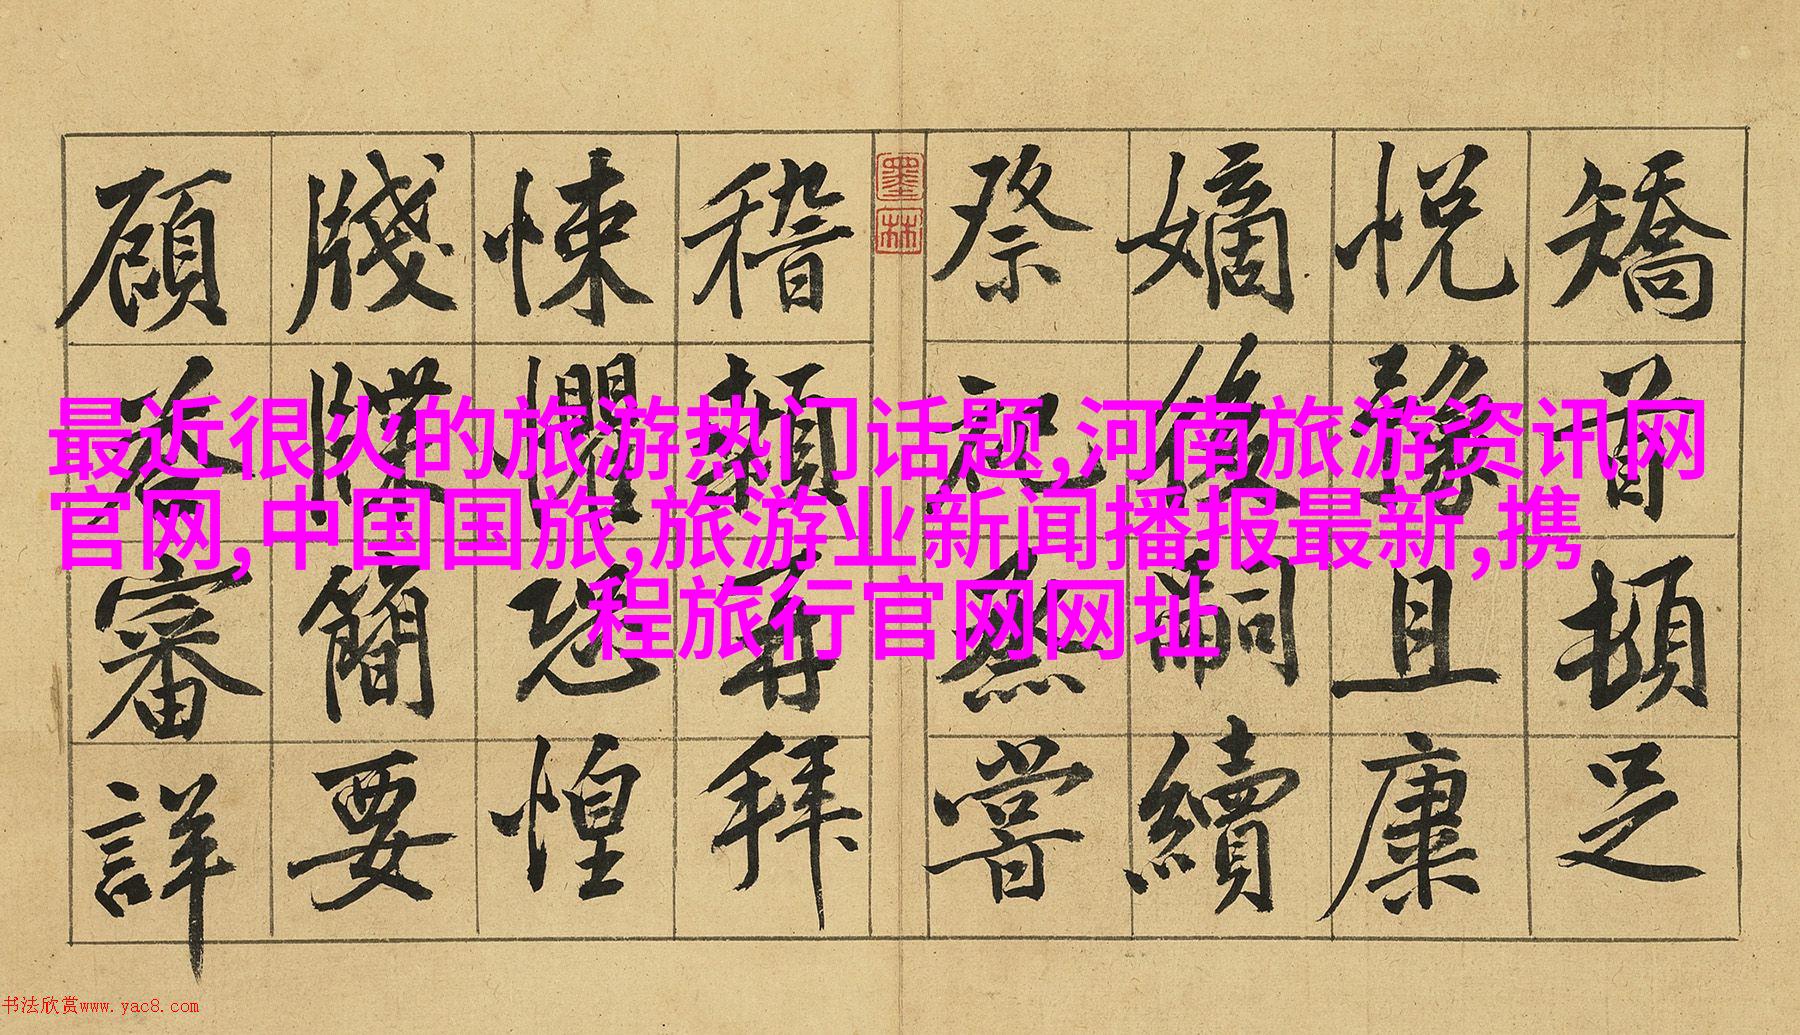 矯首頓足
悅豫且康
嫡後嗣續
祭祀烝嘗
墨林
稽顙再拜
悚懼恐惶
牋牒簡要
顧答審詳
最近很火的旅游热门话题,河南旅游资讯网
官网,中国国旅,旅游业新闻播报最新,携
程旅行官网网址
书法欣赏www.yac8.com